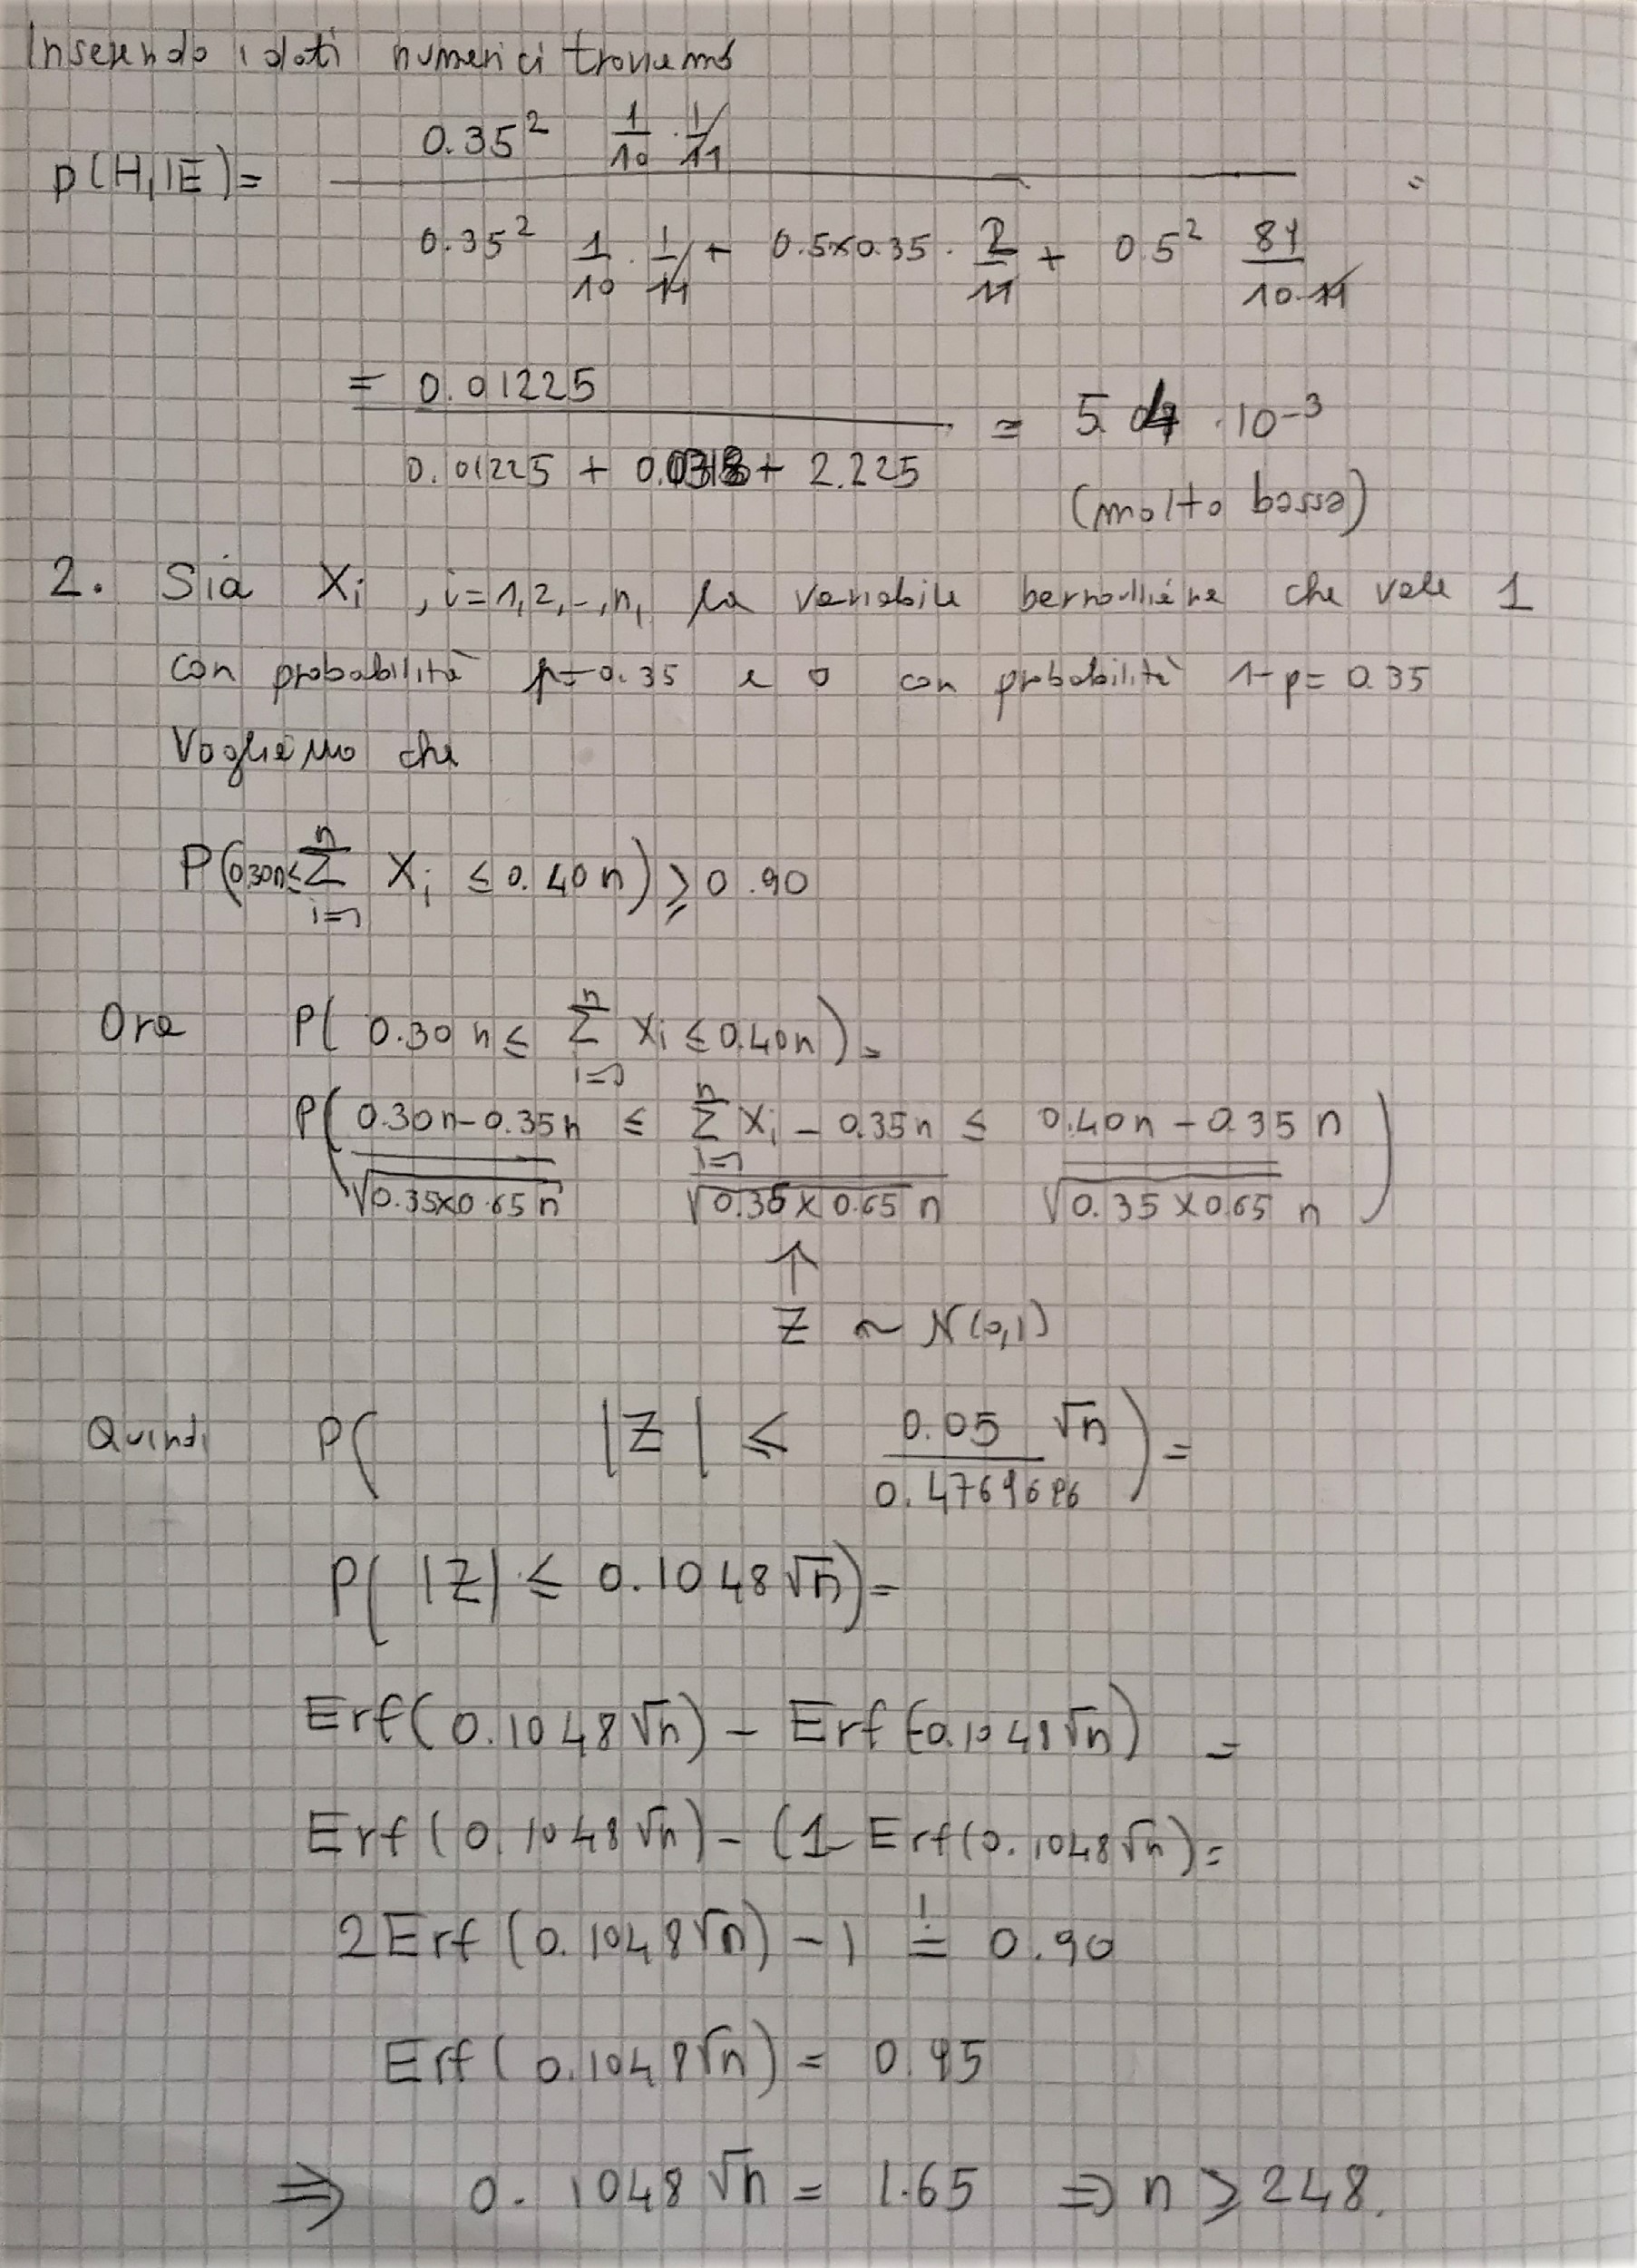 Inserendo i dati numerici troviamo
p(H₁|E) = (0.35² 1/10 · 1/11) / (0.35² 1/10 · 1/11 + 0.5×0.35 · 2/11 + 0.5² 89/(10·11)) =
= 0.01225 / (0.01225 + 0.0318 + 2.225) ≃ 5.4 · 10⁻³
(molto bassa)
2. Sia Xᵢ, i=1,2,-,n, la variabile bernoulliana che vale 1
con probabilità p=0.35 e 0 con probabilità 1-p=0.35
Vogliamo che
P(0.30n ≤ Σᵢ₌₁ⁿ Xᵢ ≤ 0.40n) ≥ 0.90
Ora P(0.30n ≤ Σᵢ₌₁ⁿ Xᵢ ≤ 0.40n) =
P((0.30n-0.35n)/√(0.35×0.65 n) ≤ (Σᵢ₌₁ⁿ Xᵢ - 0.35n)/√(0.35×0.65 n) ≤ (0.40n-0.35n)/√(0.35×0.65 n))
↑
Z ~ N(0,1)
Quindi P( |Z| ≤ 0.05 √n / 0.4769696 ) =
P( |Z| ≤ 0.1048√n) =
Erf(0.1048√n) - Erf(-0.1048√n) =
Erf(0.1048√n) - (1-Erf(0.1048√n) =
2Erf(0.1048√n) - 1 =! 0.90
Erf(0.1048√n) = 0.95
⇒ 0.1048√n = 1.65 ⇒ n ≥ 248.